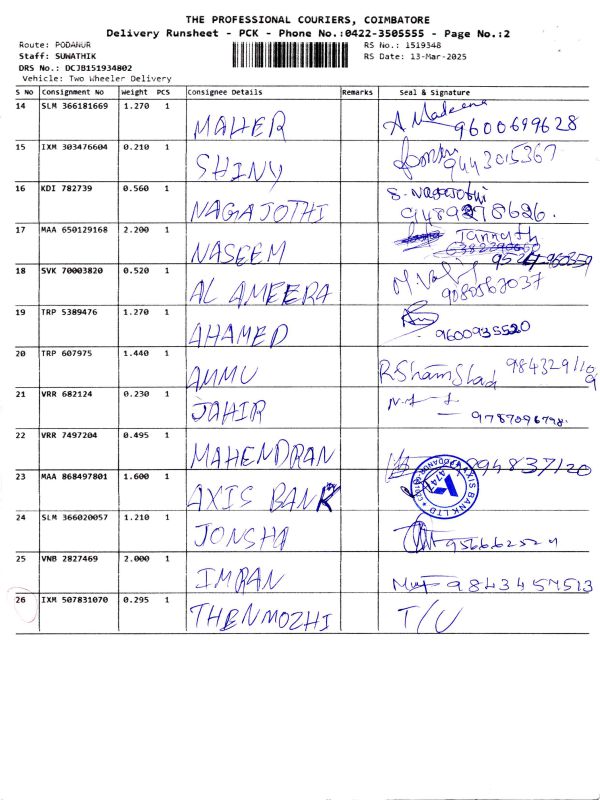 THE PROFESSIONAL COURIERS, COIMBATORE
Delivery Runsheet - PCK - Phone No.:0422-3505555 - Page No.:2
Route: PODANUR
RS No.: 1519348
Staff: SUWATHIK
RS Date: 13-Mar-2025
DRS No.: DCJB151934802
Vehicle: Two Wheeler Delivery
S No Consignment No Weight PCS Consignee Details Remarks Seal & Signature
14 SLM 366181669 1.270 1 MAHER A Madeena 9600699628
15 IXM 303476604 0.210 1 SHINY 9443015367
16 KDI 782739 0.560 1 NAGAJOTHI S. Nagajothi
9489278626.
17 MAA 650129168 2.200 1 NASEEM Jannath
18 SVK 70003820 0.520 1 AL AMEERA 9080563037
19 TRP 5389476 1.270 1 AHAMED 9600935520
20 TRP 607975 1.440 1 AMMU
21 VRR 682124 0.230 1 JAHIR 9787096798.
22 VRR 7497204 0.495 1 MAHENDRAN 994837120
23 MAA 868497801 1.600 1 AXIS BANK AXIS BANK LTD
24 SLM 366020057 1.210 1 JONSHA
25 VNB 2827469 2.000 1 IMRAN 9843457513
26 IXM 507831070 0.295 1 THENMOZHI T/U